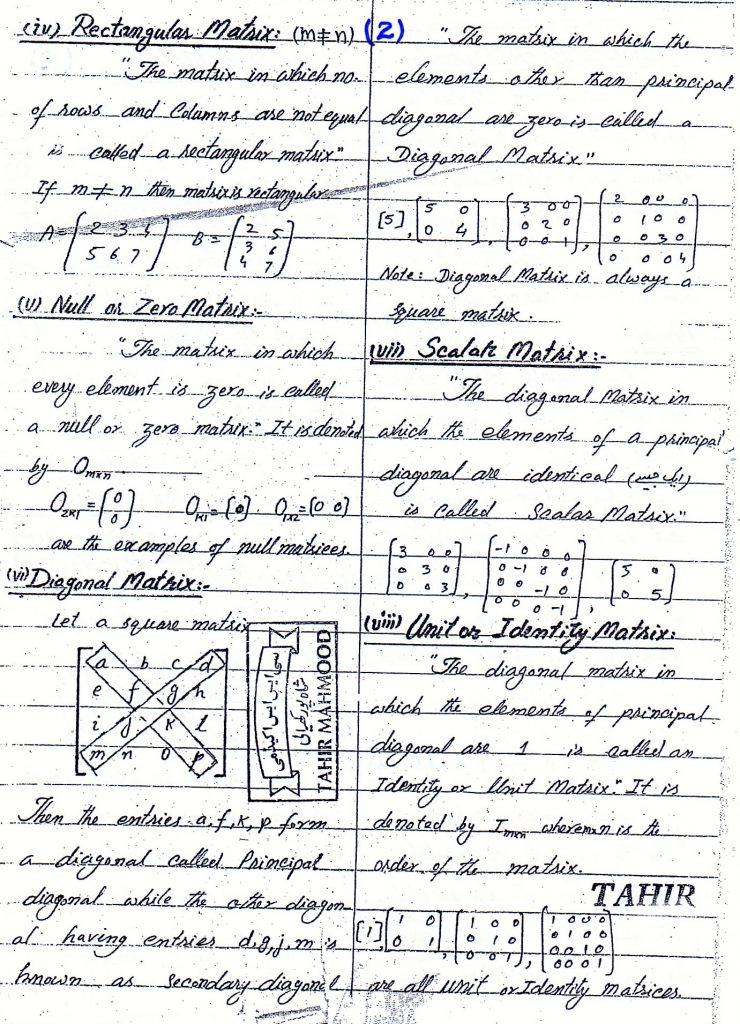 (iv) Rectangular Matrix: (m≠n) (2)
"The matrix in which no.
of rows and Columns are not equal
is called a rectangular matrix"
If m ≠ n then matrix is rectangular
A = [2 3 4
5 6 7] B = [2 5
3 6
4 7]
(v) Null or Zero Matrix:-
"The matrix in which
every element is zero is called
a null or zero matrix." It is denoted
by Omxn.
O2x1 = [0
0] O1x1 = [0]. O1x2 = [0 0]
are the examples of null matrices.
(vi) Diagonal Matrix:-
Let a square matrix
a b c d
e f g h
i j k l
m n o p
TAHIR MAHMOOD
Then the entries a, f, k, p form
a diagonal called Principal
diagonal while the other diagon-
al having entries d, g, j, m is
known as secondary diagonal
"The matrix in which the
elements other than principal
diagonal are zero is called a
Diagonal Matrix"
[5], [5 0
0 4], [3 0 0
0 2 0
0 0 1], [2 0 0 0
0 1 0 0
0 0 3 0
0 0 0 4]
Note: Diagonal Matrix is always a
square matrix.
(vii) Scalar Matrix:-
"The diagonal Matrix in
which the elements of a principal
diagonal are identical
is called Scalar Matrix."
[3 0 0
0 3 0
0 0 3], [-1 0 0 0
0 -1 0 0
0 0 -1 0
0 0 0 -1], [5 0
0 5]
(viii) Unit or Identity Matrix:
"The diagonal matrix in
which the elements of principal
diagonal are 1 is called an
Identity or Unit Matrix" It is
denoted by Imxn where mxn is the
order of the matrix.
TAHIR
[1], [1 0
0 1], [1 0 0
0 1 0
0 0 1], [1 0 0 0
0 1 0 0
0 0 1 0
0 0 0 1]
are all unit or Identity matrices.